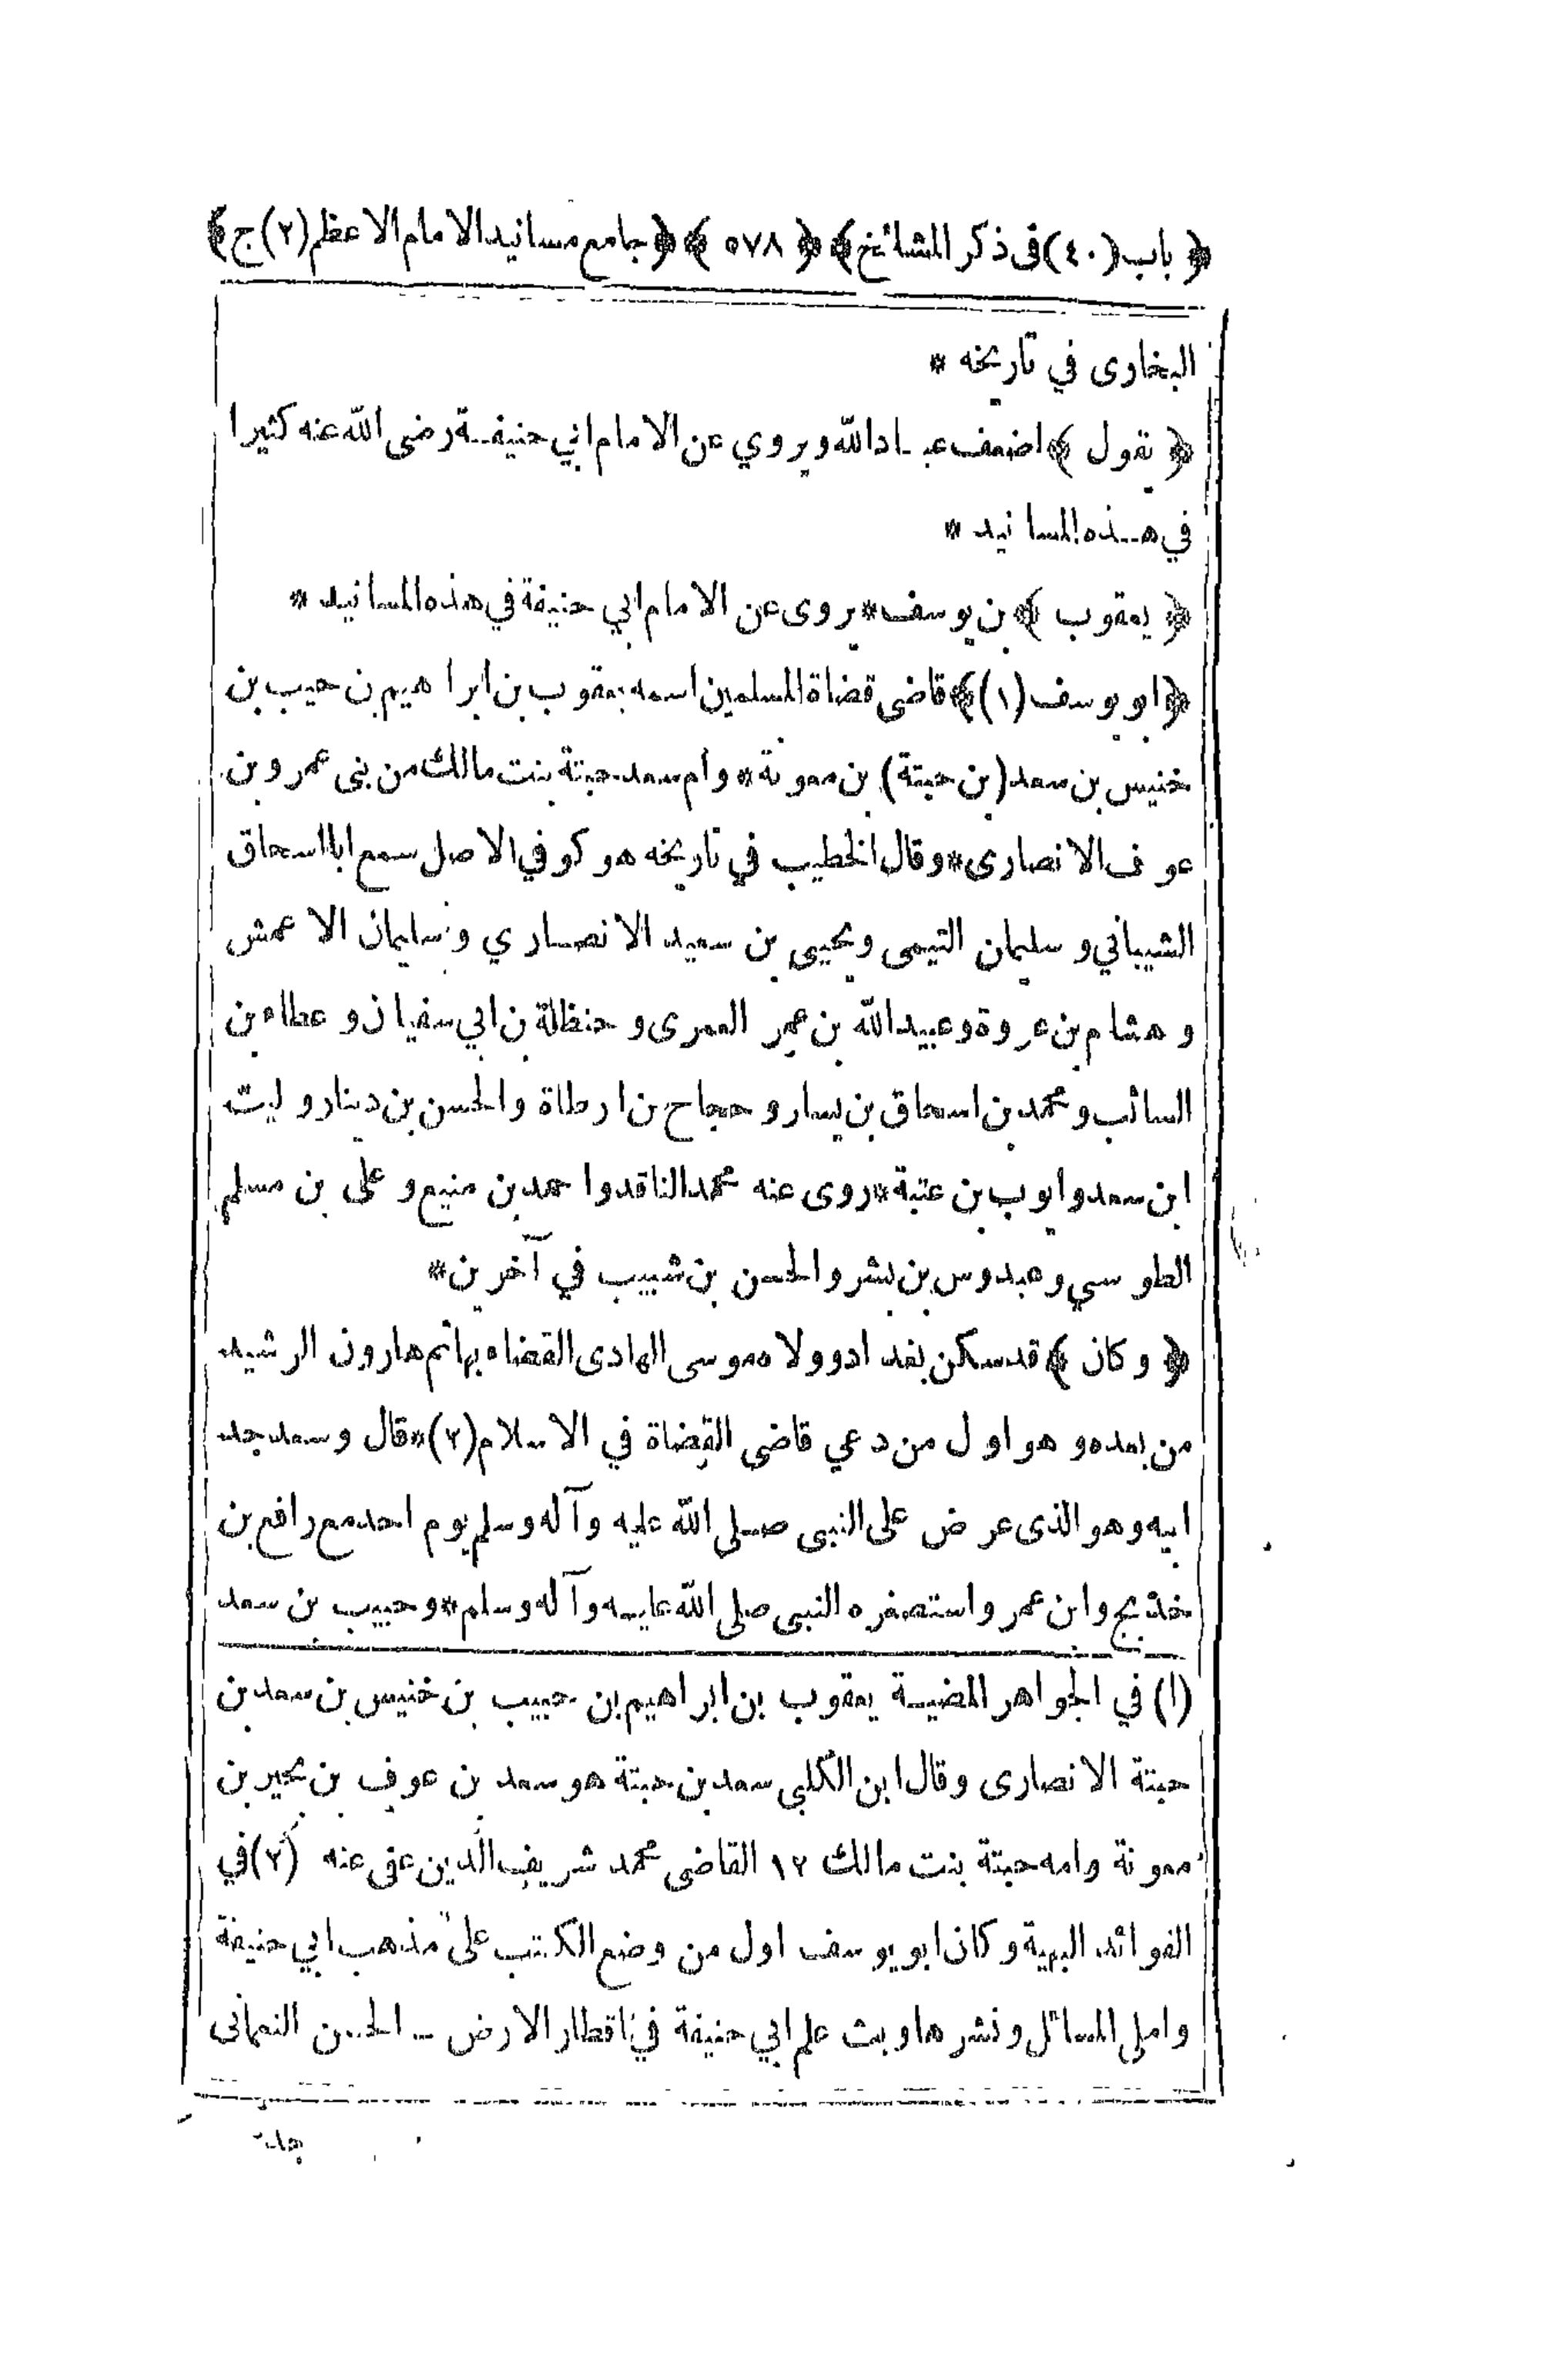 ﴿ باب (٤٠) فى ذكر المشائخ﴾ ﴿ ٥٧٨ ﴾ ﴿جامع مسانيد الامام الاعظم (٢) ج﴾
البخاوى في تاريخه *
﴿ يقول ﴾ اضعف عباد الله ويروي عن الامام ابي حنيفة رضى الله عنه كثيرا
في هذه المسانيد *
﴿ يعقوب ﴾ بن يوسف * يروى عن الامام ابي حنيفة في هذه المسانيد *
﴿ابو يوسف (١)﴾ قاضى قضاة المسلمين اسمه يعقوب بن ابراهيم بن حبيب بن
خنيس بن سعد (بن حبتة) بن معونة * وام سعد حبتة بنت مالك من بنى عمرو بن
عوف الانصارى * وقال الخطيب في تاريخه هو كوفي الاصل سمع ابا اسحاق
الشيباني و سليمان التيمى ويحيى بن سعيد الانصاري و سليمان الاعمش
و هشام بن عروة و عبيد الله بن عمر العمرى و حنظلة بن ابي سفيان و عطاء بن
السائب و محمد بن اسحاق بن يسار و حجاج بن ارطاة والحسن بن دينار و ليث
ابن سعد وايوب بن عتبة * روى عنه محمد الناقد واحمد بن منيع و على بن مسلم
الطوسي و عبدوس بن بشر والحسن بن شبيب في آخرين *
﴿ وكان ﴾ قد سكن بغداد وولاه موسى الهادى القضاء بها ثم هارون الرشيد
من بعده و هو اول من دعي قاضى القضاة في الاسلام (٢) * قال وسعد جد
ابيه وهو الذى عرض على النبى صلى الله عليه وآله وسلم يوم احد مع رافع بن
خديج وابن عمر واستصغره النبى صلى الله عليه وآله وسلم * وحبيب بن سعد
(١) في الجواهر المضية يعقوب بن ابراهيم بن حبيب بن خنيس بن سعد بن
حبتة الانصارى وقال ابن الكلبي سعد بن حبتة هو سعد بن عوف بن بحير بن
معونة وامه حبتة بنت مالك ١٢ القاضى محمد شريف الدين عفى عنه (٢) في
الفوائد البهية وكان ابو يوسف اول من وضع الكتب على مذهب ابي حنيفة
واملى المسائل ونشرها وبث علم ابي حنيفة في اقطار الارض – الحسن النعمانى